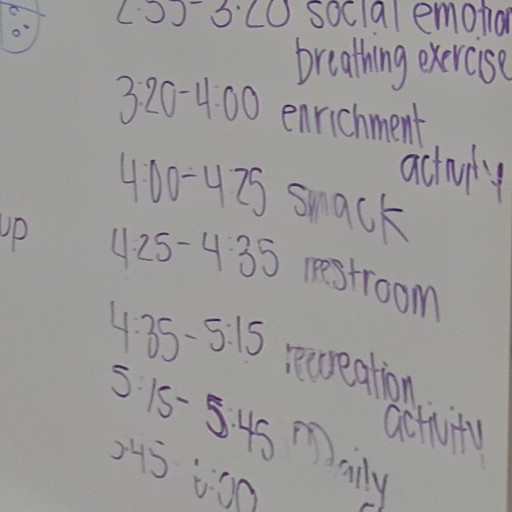 2:55-3:20 social emotion
breathing exercise
3:20-4:00 enrichment
activity
4:00-4:25 snack
up
4:25-4:35 restroom
4:35-5:15 recreation
activity
5:15-5:45